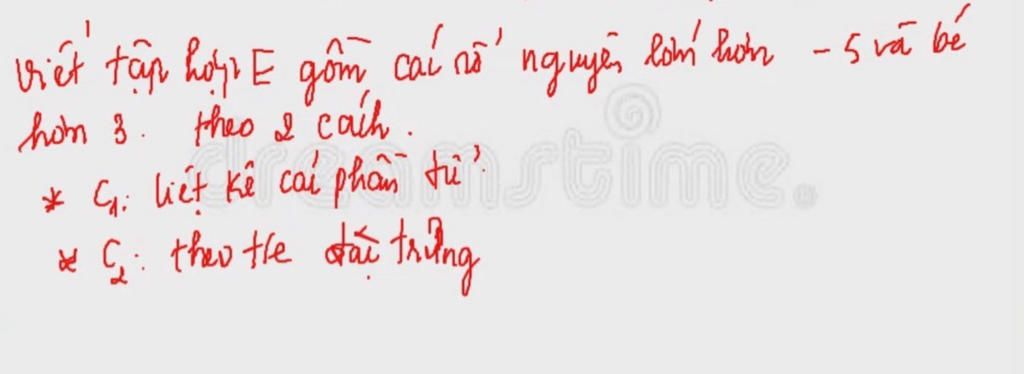 viết tập hợp E gồm các số nguyên lớn hơn -5 và bé
hơn 3. theo 2 cách.
* C1: liệt kê các phần tử.
* C2: theo t/c đặc trưng
dreamstime.